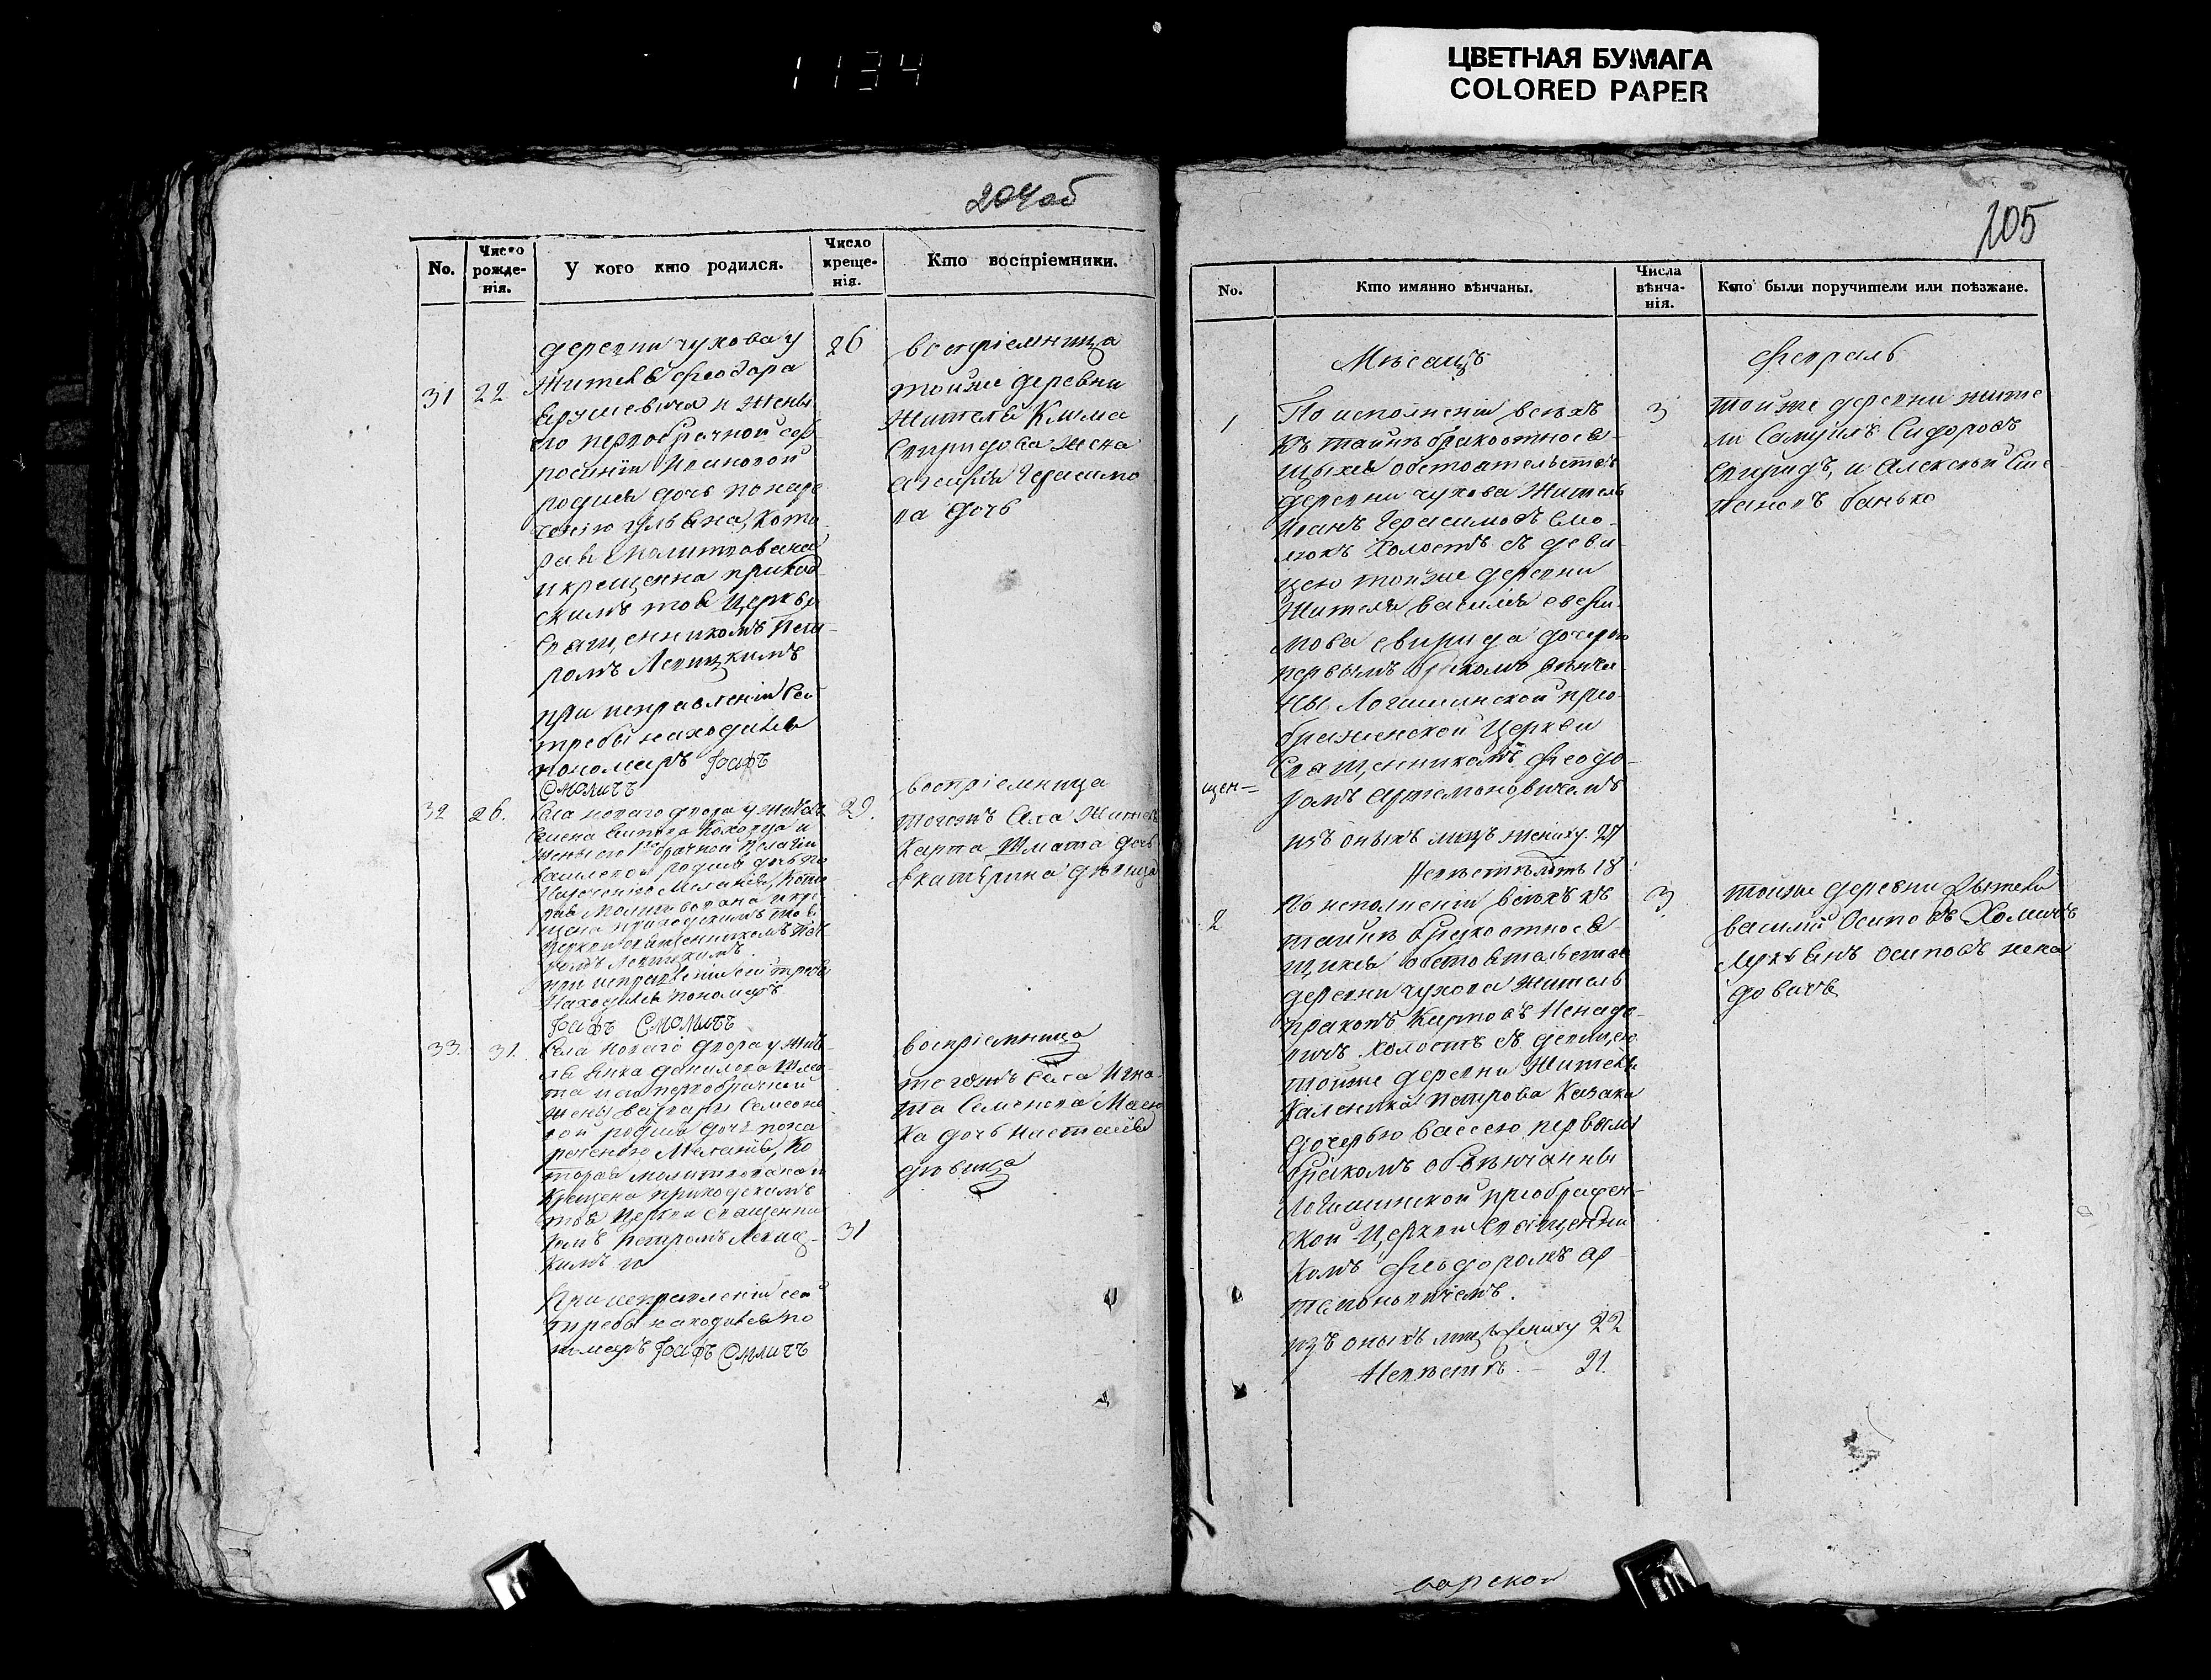 1134
ЦВЕТНАЯ БУМАГА
COLORED PAPER
204об
No.
Число рожде-нія.
У кого кто родился.
Число креще-нія.
Кто воспріемники.
31
22
деревни чухова у
Жителя Феодора
и жены
его первобрачной
Ивановой
родися дочь по наре
чению Ульяна, кото
рая молитвована
и крещенна приход
скимъ тоя Церкви
Священникомъ Пет-
ромъ Левицкимъ
при исправленіи сей
требы находился
пономарь Іоафъ
Смоличъ
26
воспріемница
тойже деревни
жителя Клима
Спиридова жена
Герасимо
ва дочь
32
26.
Села новаго двора у жителя
Семена
жены его 1 брачной Пелагіи
родися дочь по
наречению Меланія, кото
рая молитвована и кре
щена приходскимъ тоя
Церкви священникомъ Пет
ромъ Левицкимъ
при исправленіи сей требы
находился пономарь
Іоафъ Смоличъ
29.
воспріемница
тогожъ Села жителя
Карпа Шмата дочь
Екатерина девица
33.
31.
Села новаго двора у жите
ля данилова Шма
та и первобрачной
жены Варвары Семено
вой родися дочь по на
речению Меланія, ко
торая молитвована и
крещена приходскимъ
тоя Церкви священни
комъ Петромъ Левиц-
кимъ
При исправленіи сей
требы находился по
номарь Іоафъ Смоличъ
31
воспріемница
тогожъ Села Игна
та Семенова
ка дочь Настасья
девица
205
No.
Кто имянно вѣнчаны.
Числа вѣнча-нія.
Кто были поручители или поѣзжане.
Мѣсяцъ
Февраль
1
По исполненіи всехъ
къ таинѣ брака относя-
щыхся обстоятельствъ
деревни чухова житель
Иванъ Герасимовъ
холостъ съ деви-
цею тойже деревни
жителя василія
мова свирида дочерью
первымъ бракомъ венча
ны Логишинской прео
браженской Церкви
Священникомъ Феодо-
щен=
ромъ Артемоновичемъ
изъ оныхъ лицъ жениху 27
Невѣстѣ лѣтъ 18
3
тойже деревни жите
ли Самуилъ Сидоровъ
Свиридъ, и Алексѣй Сте
пановъ банько
2
По исполненіи всѣхъ къ
таинѣ брака относя
щихся обстоятельствъ
деревни чухова житель
Карповъ Ненадо-
вичъ холостъ съ девицею
тойже деревни жителя
Каленика Петрова Казака
дочерью Вассею первымъ
бракомъ обвѣнчанны
Логишинской преображен-
ской Церкви Священни
комъ Феодоромъ Ар
темоновичемъ.
изъ оныхъ лицъ жениху 22
Невѣстѣ. — 21
3
тойже деревни жители
василій Осиповъ Холичъ
Осиповъ нена
довичъ